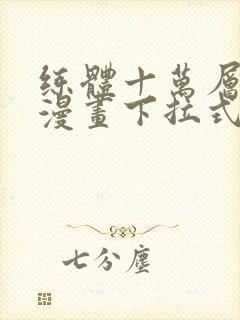 練體十萬層
漫畫下拉式
七分塵